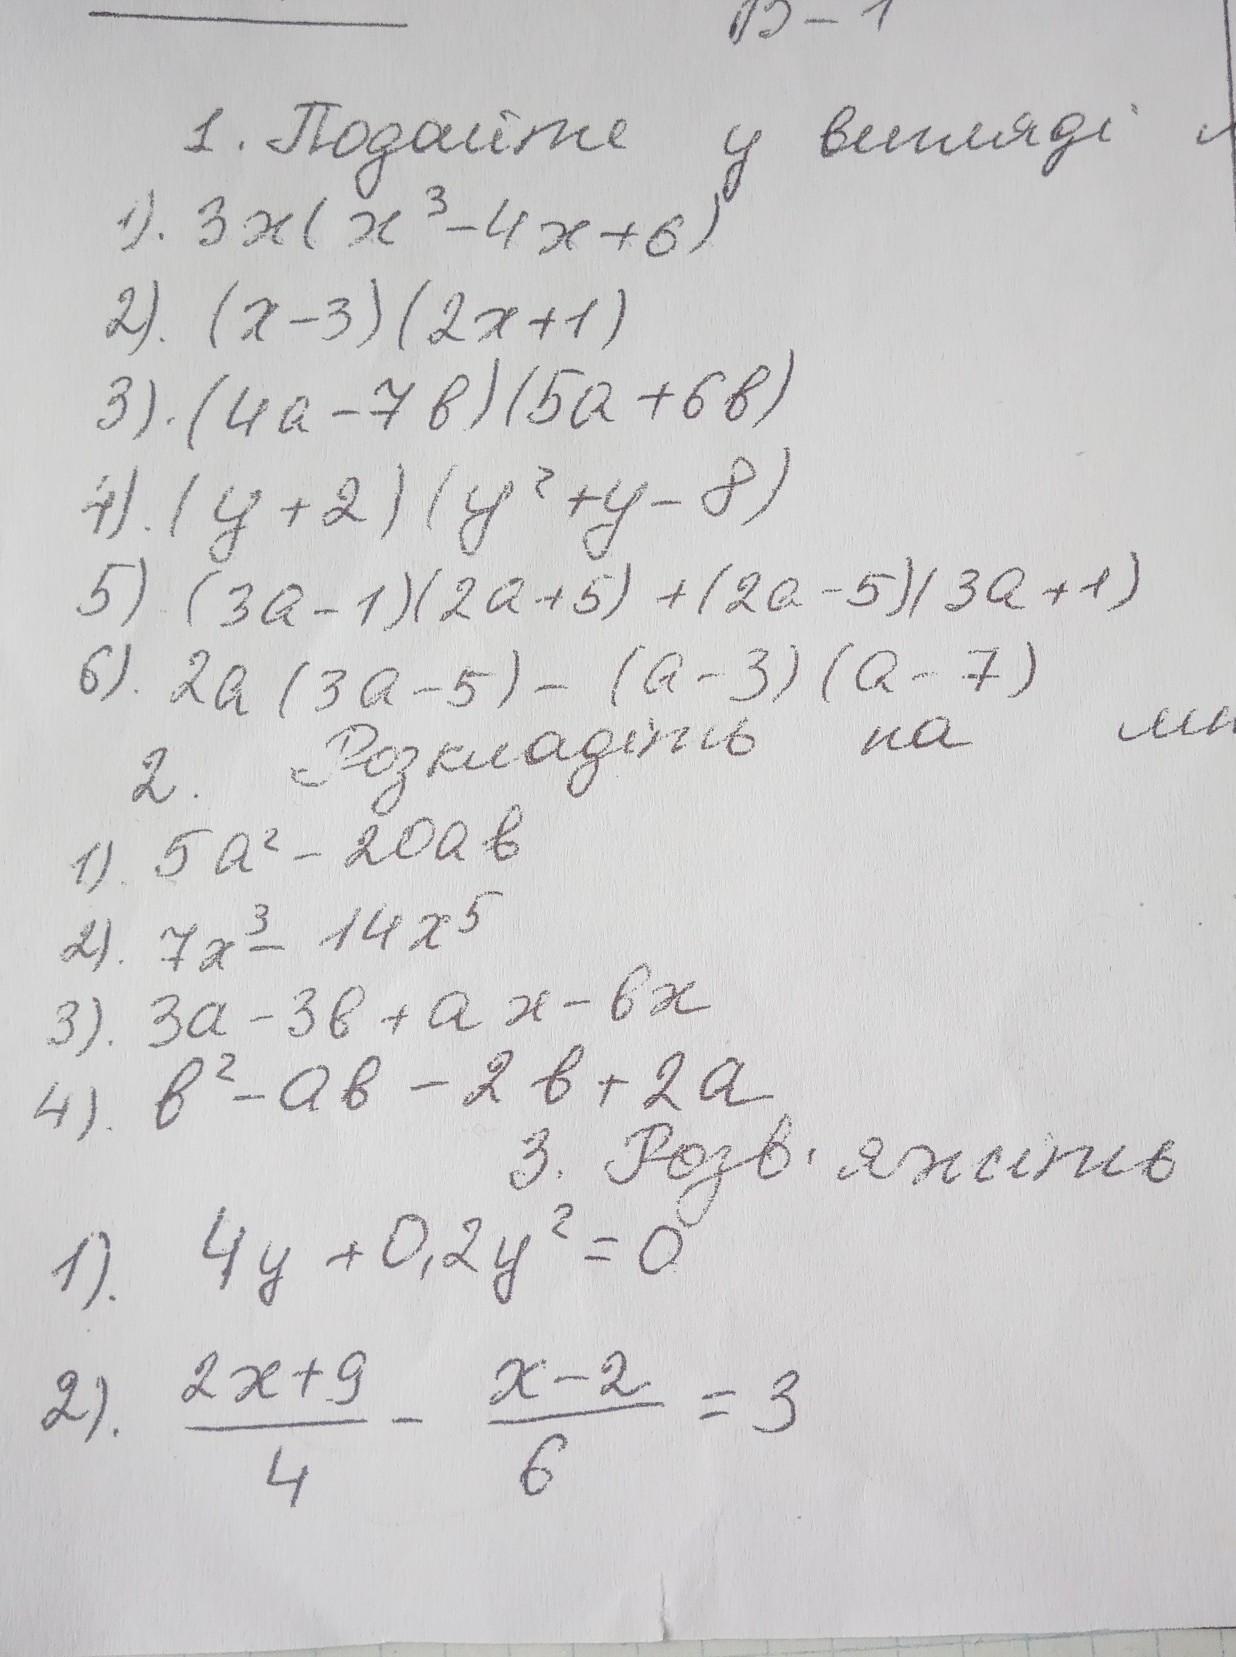 В-1
1. Подайте у вигляді
1). 3x(x³-4x+6)
2). (x-3)(2x+1)
3). (4a-7b)(5a+6b)
4). (y+2)(y²+y-8)
5) (3a-1)(2a+5)+(2a-5)(3a+1)
6). 2a(3a-5)-(a-3)(a-7)
2. Розкладіть на мн
1). 5a²-20ab
2). 7x³-14x⁵
3). 3a-3b+ax-bx
4). b²-ab-2b+2a
3. Розв'яжіть
1). 4y+0,2y²=0
2). (2x+9)/4 - (x-2)/6 = 3